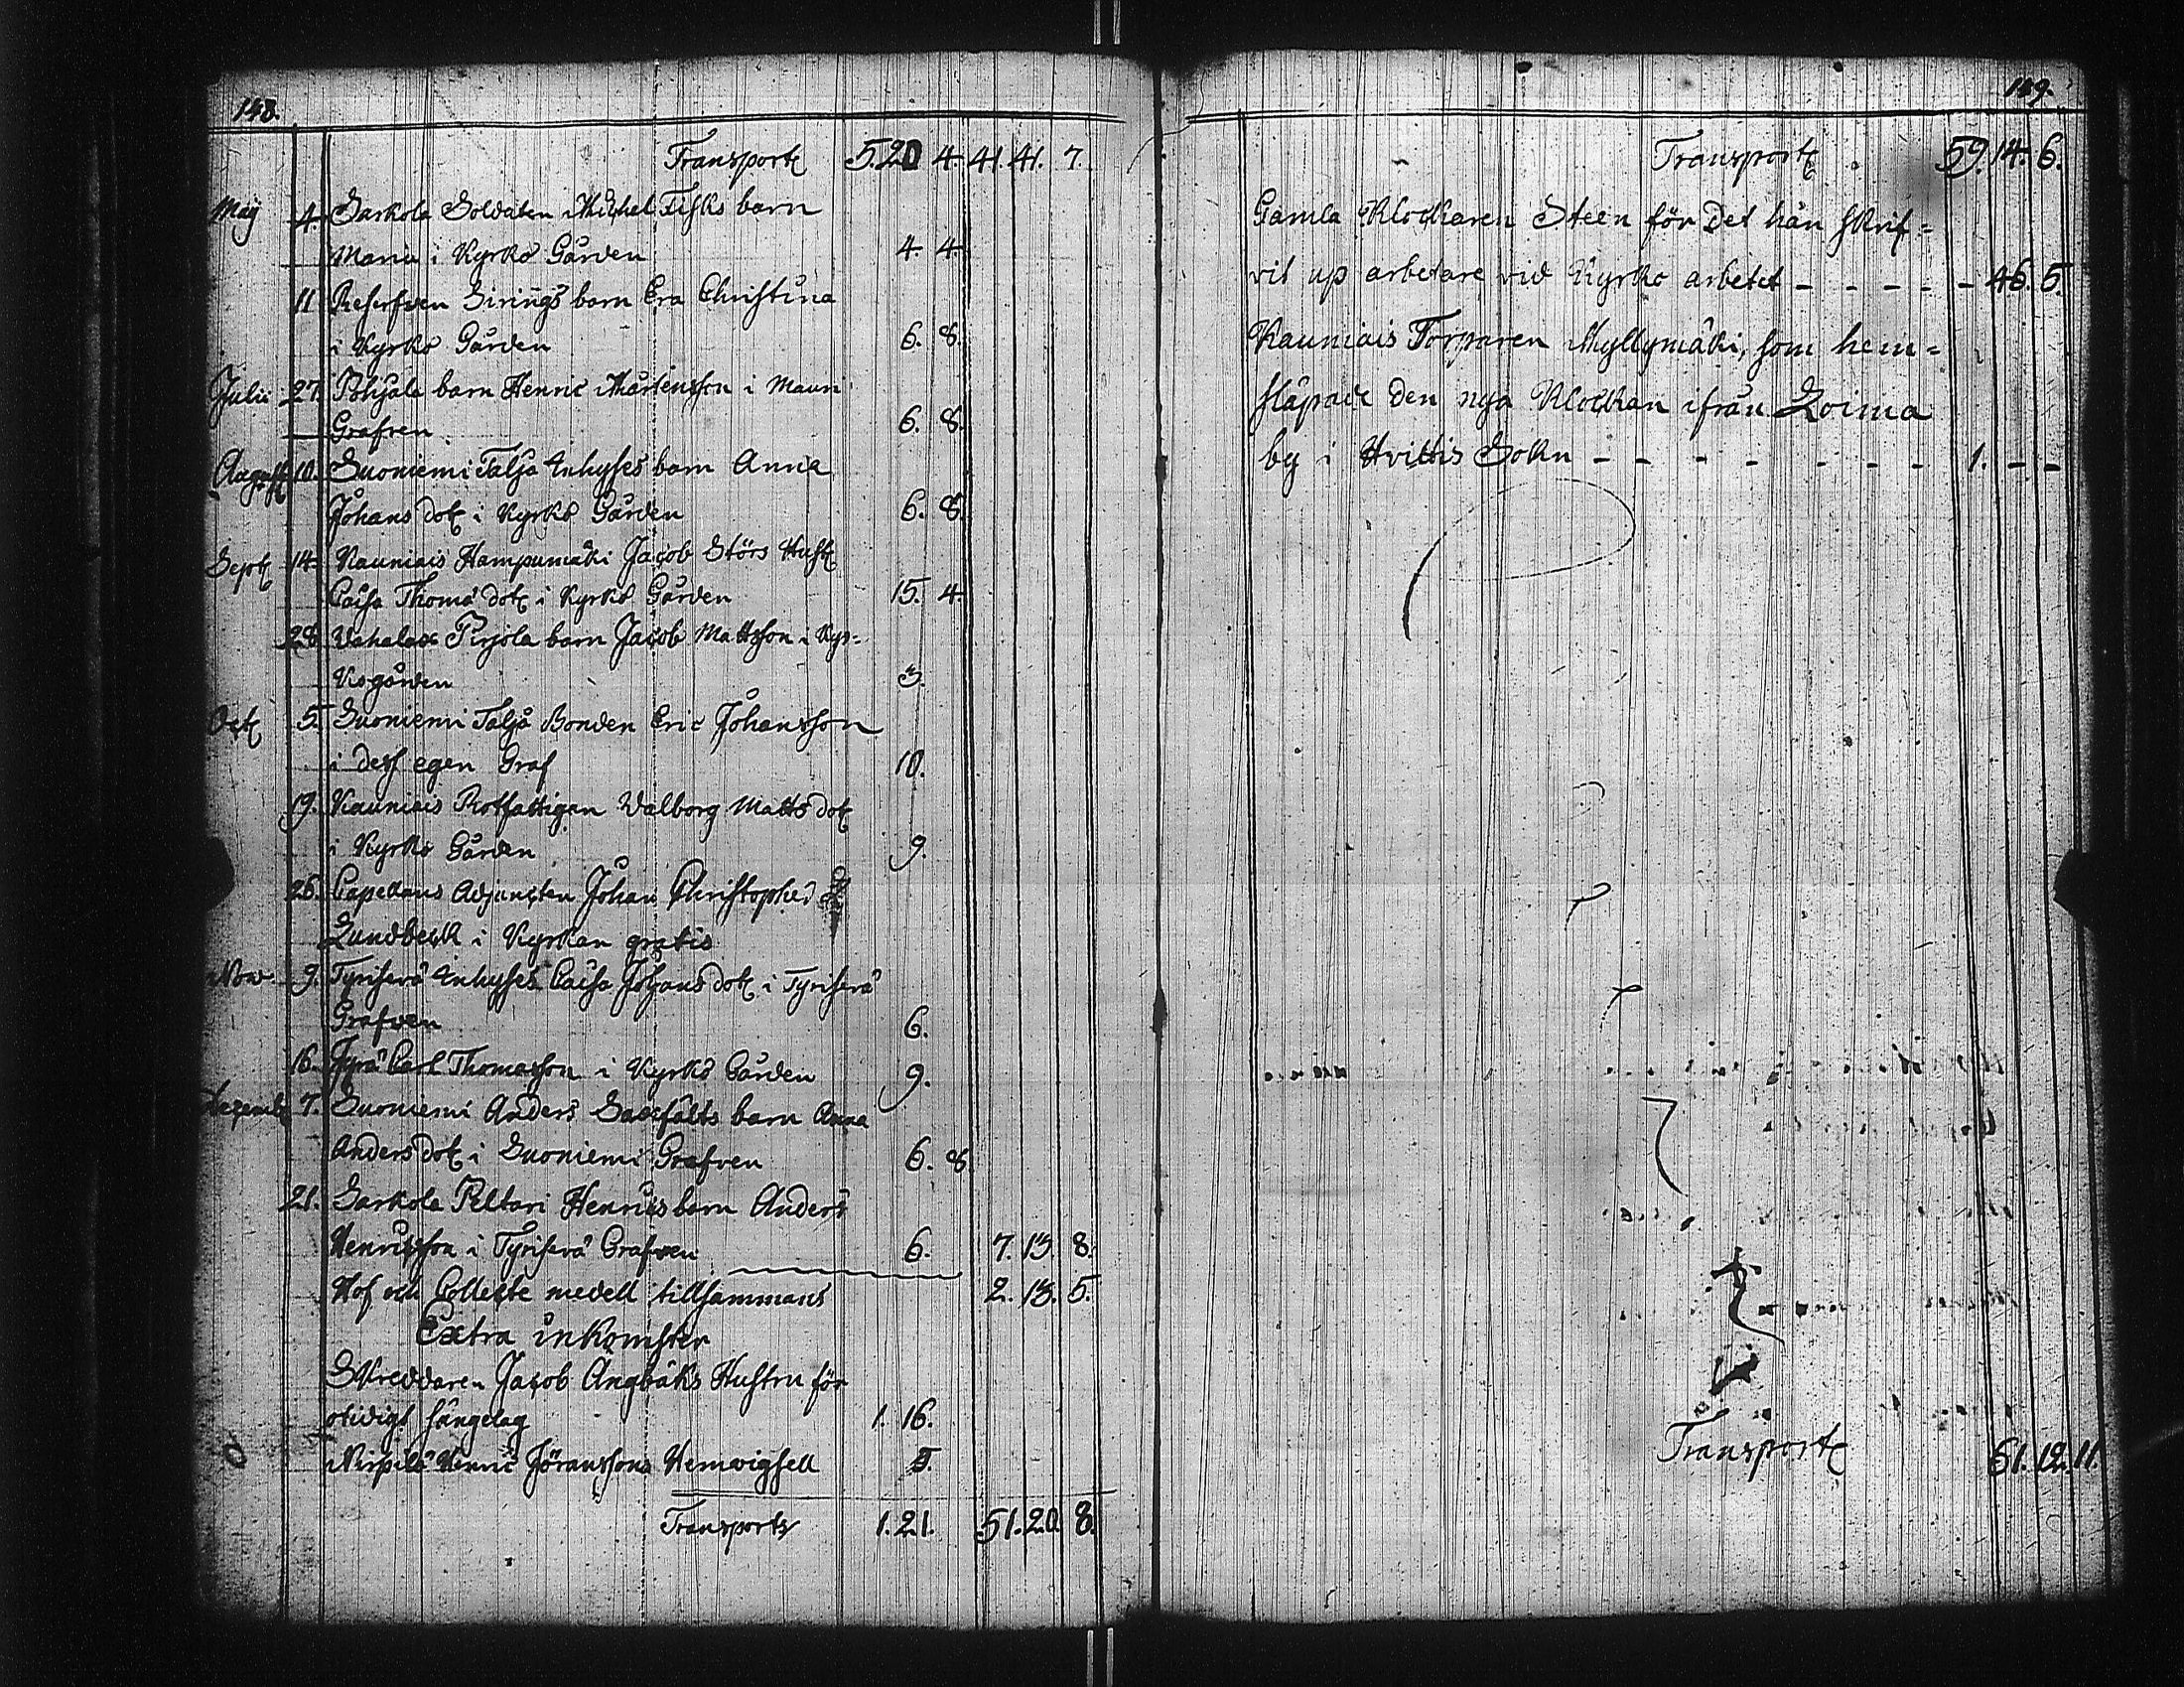 148.
Transport 5.20 4 41.41. 7.
Maÿ 4. Sarkola Soldaten Michel Fisks barn
Maria i Kyrko Gården 4. 4.
11 Reserfven Sirings barn Eva Christina
i Kyrko Gården 6. 8.
Julii 27. Pohjala barn Henric Mårtensson i Mauri
Grafven 6. 8.
August 10. Suoniemi Talja Inhyses barn Anna
Johans dotr i Kyrko Gården 6. 8.
Septr 14. Kauniais Hampumäki Jacob Störs Hustr
Caisa Thomæ dotr i Kyrko Gården 15. 4.
28. Pirjola barn Jacob Mattsson i Kyr=
kogården 3.
Octr 5. Suoniemi Talja Bonden Eric Johansson
i dess egen Graf 10.
19. Kauniais Rotfattigan Walborg Matts dotr
i Kyrko Gården 9.
26. Capellans Adjuncten Johan Christopher
Lundbeck i Kyrkan gratis
Nov. 9. Tyrisevä Inhyses Caisa Johans dotr i Tyrisevä
Grafven 6.
16. Carl Thomasson i Kyrko Gården 9.
Decembr 7. Suoniemi Anders barn Anna
Anders dotr i Suoniemi Grafven 6. 8
21. Sarkola Peltari Henrics barn Anders
Henricsson i Tyrisevä Grafven 6. 7. 13. 8.
Hof och Collecte medell tillsammans 2. 13. 5.
Extra inkomster
Skreddaren Jacob Ångbäks Hustru för
otidigt sängelag 1. 16.
Henric Jöranssons Hemvigsell 5.
Transport 1.21. 51.20. 8.
149.
Transport 59.14. 6.
Gamla Klockaren Steen för det hän skrif=
vit up arbetare vid Kyrko arbetet - - - - - 46. 5.
Kauniais Torparen Myllymäki, som hem=
släpade den nya Klockan ifrån Loima
by i Hvittis Sokn - - - - - - - - 1. - -
Transport 61.12.11.